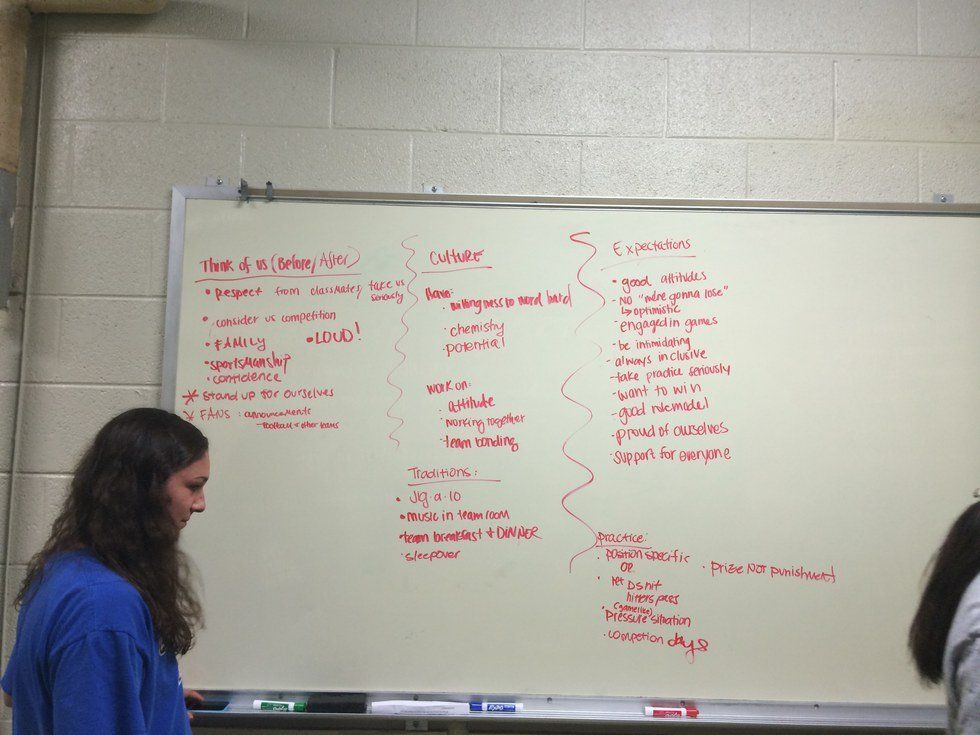 Think of us (Before/After)
• Respect from classmates/ take us seriously
• consider us competition
• FAMILY • LOUD!
• sportsmanship
• confidence
* stand up for ourselves
* FANS : announcements
- football + other teams
CULTURE
Have:
• willingness to word hard
• chemistry
• potential
work on:
• attitude
• working together
- team bonding
Traditions:
• Jig·a·10
• music in team room
• team breakfast + DINNER
• sleepover
Expectations
• good attitudes
- No "we're gonna lose"
↳ optimistic
- engaged in games
- be intimidating
- always inclusive
- take practice seriously
- want to win
- good role model
- proud of ourselves
- support for everyone
practice:
• position specific • prize NOT punishment
OR
• let DS hit
hitters pass
(gamelike)
• Pressure situation
• competion days